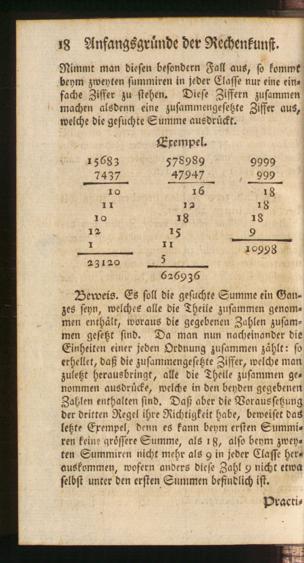 18 Anfangsgründe der Rechenkunst.
Nimmt man diesen besondern Fall aus, so kommt
beym zweyten summiren in jeder Classe nur eine ein-
fache Ziffer zu stehen. Diese Ziffern zusammen
machen alsdenn eine zusammengesetzte Ziffer aus,
welche die gesuchte Summe ausdrückt.
Exempel.
15683 578989 9999
7437 47947 999
10 16 18
11 12 18
10 18 18
12 15 9
1 11 10998
23120 5
626936
Beweis. Es soll die gesuchte Summe ein Gan-
zes seyn, welches alle die Theile zusammen genom-
men enthält, woraus die gegebenen Zahlen zusam-
men gesetzt sind. Da man nun nacheinander die
Einheiten einer jeden Ordnung zusammen zählt: so
erhellet, daß die zusammengesetzte Ziffer, welche man
zuletzt herausbringt, alle die Theile zusammen ge-
nommen ausdrücke, welche in den beyden gegebenen
Zahlen enthalten sind. Daß aber die Voraussetzung
der dritten Regel ihre Richtigkeit habe, beweiset das
letzte Exempel, denn es kann beym ersten Summi-
ren keine grössere Summe, als 18, also beym zwey-
ten Summiren nicht mehr als 9 in jeder Classe her-
auskommen, wofern anders diese Zahl 9 nicht etwa
selbst unter den ersten Summen befindlich ist.
Practi-